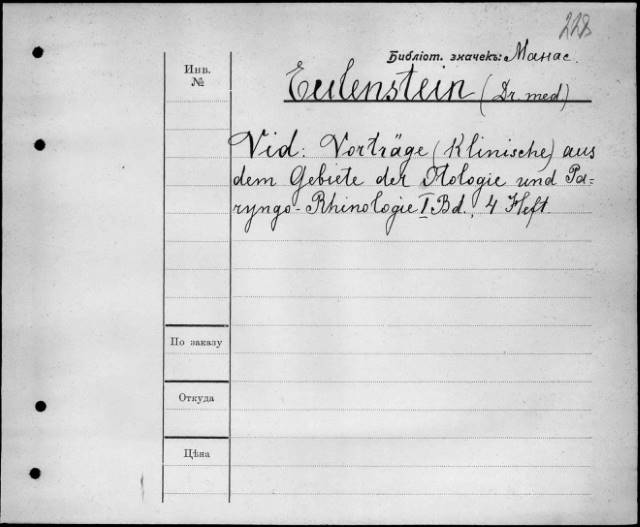 228
Библіот. значекъ: Манас.
Инв.
№
Eulenstein (Dr. med)
Vid: Vorträge (Klinische) aus
dem Gebiete der Otologie und Pa=
ryngo-Rhinologie I Bd., 4 Heft.
По заказу
Откуда
Цѣна